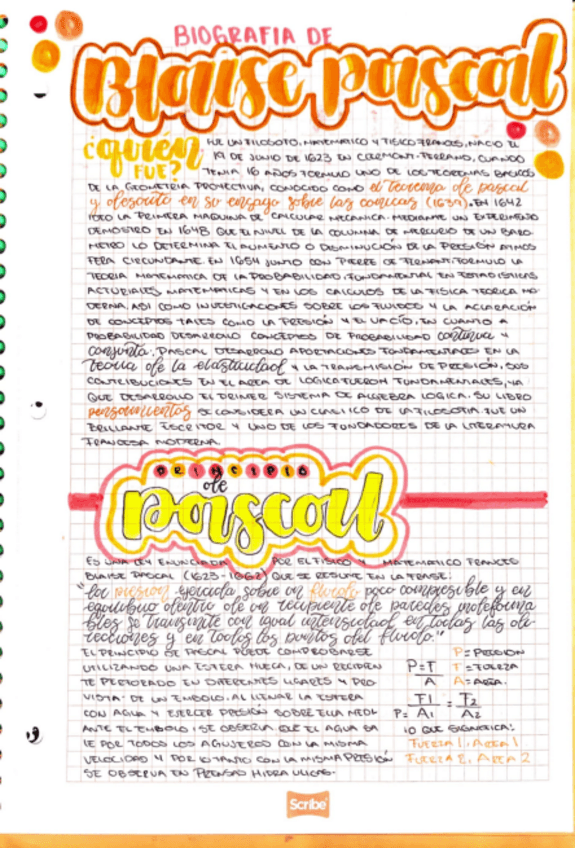 BIOGRAFIA DE
Blaise pascal
¿quién FUE?
FUE UN FILOSOFO, MATEMATICO Y FISICO FRANCES, NACIO EL
19 DE JUNIO DE 1623 EN CLERMONT-FERRAND, CUANDO
TENIA 16 AÑOS FORMULO UNO DE LOS TEOREMAS BASICOS
DE LA GEOMETRIA PROYECTIVA, CONOCIDO COMO el teorema de pascal
y descrito en su ensayo sobre las conicas (1639). EN 1642
IDEO LA PRIMERA MAQUINA DE CALCULAR MECANICA. MEDIANTE UN EXPERIMENO
DEMOSTRO EN 1648 QUE EL NIVEL DE LA COLUMNA DE MERCURIO DE UN BARO
METRO LO DETERMINA EL AUMENTO O DISMINUCIÓN DE LA PRESIÓN ATMOS
FERA CIRCUNDANTE. EN 1654 JUNTO CON PIERRE DE FERMANT. FORMULO LA
TEORIA MATEMATICA DE LA PROBABILIDAD, FUNDAMENTAL EN ESTADISTICAS
ACTURIALES, MATEMATICAS Y EN LOS CALCULOS DE LA FISICA TEORICA MO
DERNA. ASI COMO INVESTIGACIONES SOBRE LOS FLUIDOS Y LA ACLARACIÓN
DE CONCEPTOS TALES COMO LA PRESIÓN Y EL VACÍO, EN CUANTO A
PROBABILIDAD DESARROLLO CONCEPTOS DE PROBABILIDAD continua y
conjunta. PASCAL DESARROLLO APORTACIONES FUNDAMENTALES EN LA
teoria de la elasticidad Y LA TRANSMISIÓN DE PRESIÓN, SUS
CONTRIBUCIONES EN EL AREA DE LOGICA FUERON FUNDAMENTALES, YA
QUE DESARROLLO EL PRIMER SISTEMA DE ALGEBRA LOGICA. SU LIBRO
pensamientos SE CONSIDERA UN CLASICO DE LA FILOSOFIA. FUE UN
BRILLANTE ESCRITOR Y UNO DE LOS FUNDADORES DE LA LITERATURA
FRANCESA MODERNA.
PRINCIPIO
de
pascal
ES UNA LEY ENUNCIADA POR EL FISICO Y MATEMATICO FRANCES
BLAISE PASCAL (1623-1662) QUE SE RESUME EN LA FRASE:
"la presion ejercida sobre un fluido poco compresible y en
equilibrio dentro de un recipiente de paredes indeforma
bles se transmite con igual intensidad en todas las di-
recciones y en todos los puntos del fluido."
EL PRINCIPIO DE PASCAL PUEDE COMPROBARSE
UTILIZANDO UNA ESFERA HUECA, DE UN RECIPIEN
TE PERFORADO EN DIFERENTES LUGARES Y PRO
VISTA DE UN EMBOLO. AL LLENAR LA ESFERA
CON AGUA Y EJERCER PRESION SOBRE ELLA MEDI
ANTE EL EMBOLO, SE OBSERVA QUE EL AGUA SA
LE POR TODOS LOS AGUJEROS CON LA MISMA
VELOCIDAD Y POR LO TANTO CON LA MISMA PRESIÓN
SE OBSERVA EN PRENSAS HIDRAULICAS.
P=F/A
P= PRESION
F= FUERZA
A= AREA.
P= F1/A1 = F2/A2
LO QUE SIGNIFICA:
FUERZA 1, AREA 1
FUERZA 2, AREA 2
Scribe